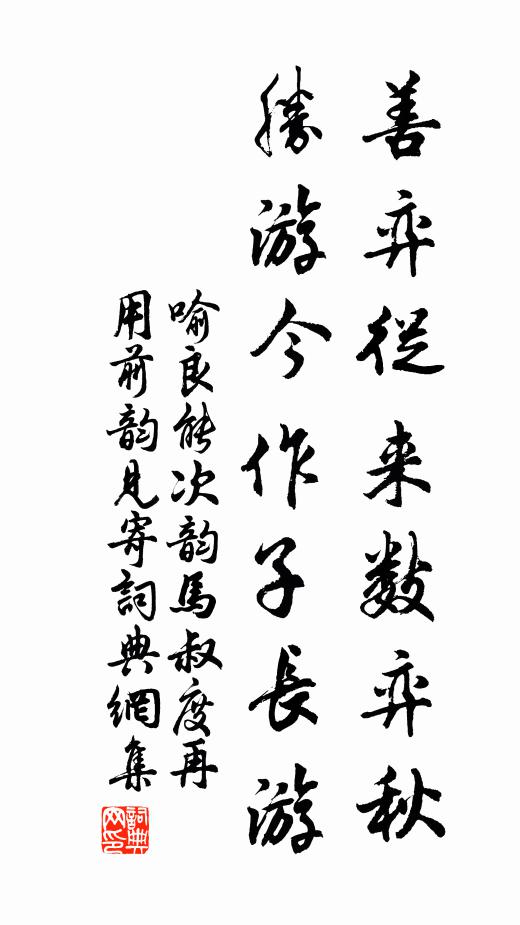 善弈從来數弈秋
勝游今作子長游
喻良能次韵馬叔度再
用前韵見寄詞典網集
詞典網印